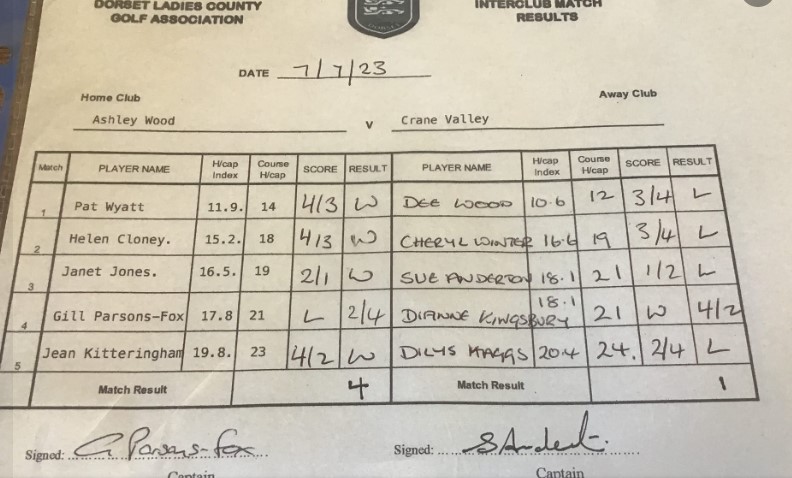 DORSET LADIES COUNTY INTERCLUB MATCH
GOLF ASSOCIATION RESULTS
DATE 7/7/23
Home Club Away Club
Ashley Wood v Crane Valley
Match PLAYER NAME H/cap Index Course H/cap SCORE RESULT PLAYER NAME H/cap Index Course H/cap SCORE RESULT
1 Pat Wyatt 11.9. 14 4/3 W DEE WOOD 10.6 12 3/4 L
2 Helen Cloney. 15.2. 18 4/3 W CHERYL WINTER 16.6 19 3/4 L
3 Janet Jones. 16.5. 19 2/1 W SUE ANDERTON 18.1 21 1/2 L
4 Gill Parsons-Fox 17.8 21 L 2/4 DIANNE KINGSBURY 18.1 21 W 4/2
5 Jean Kitteringham 19.8. 23 4/2 W DILYS MAGGS 20.4 24. 2/4 L
Match Result 4 Match Result 1
Signed: G Parsons-Fox Signed: S Andert
Captain Captain